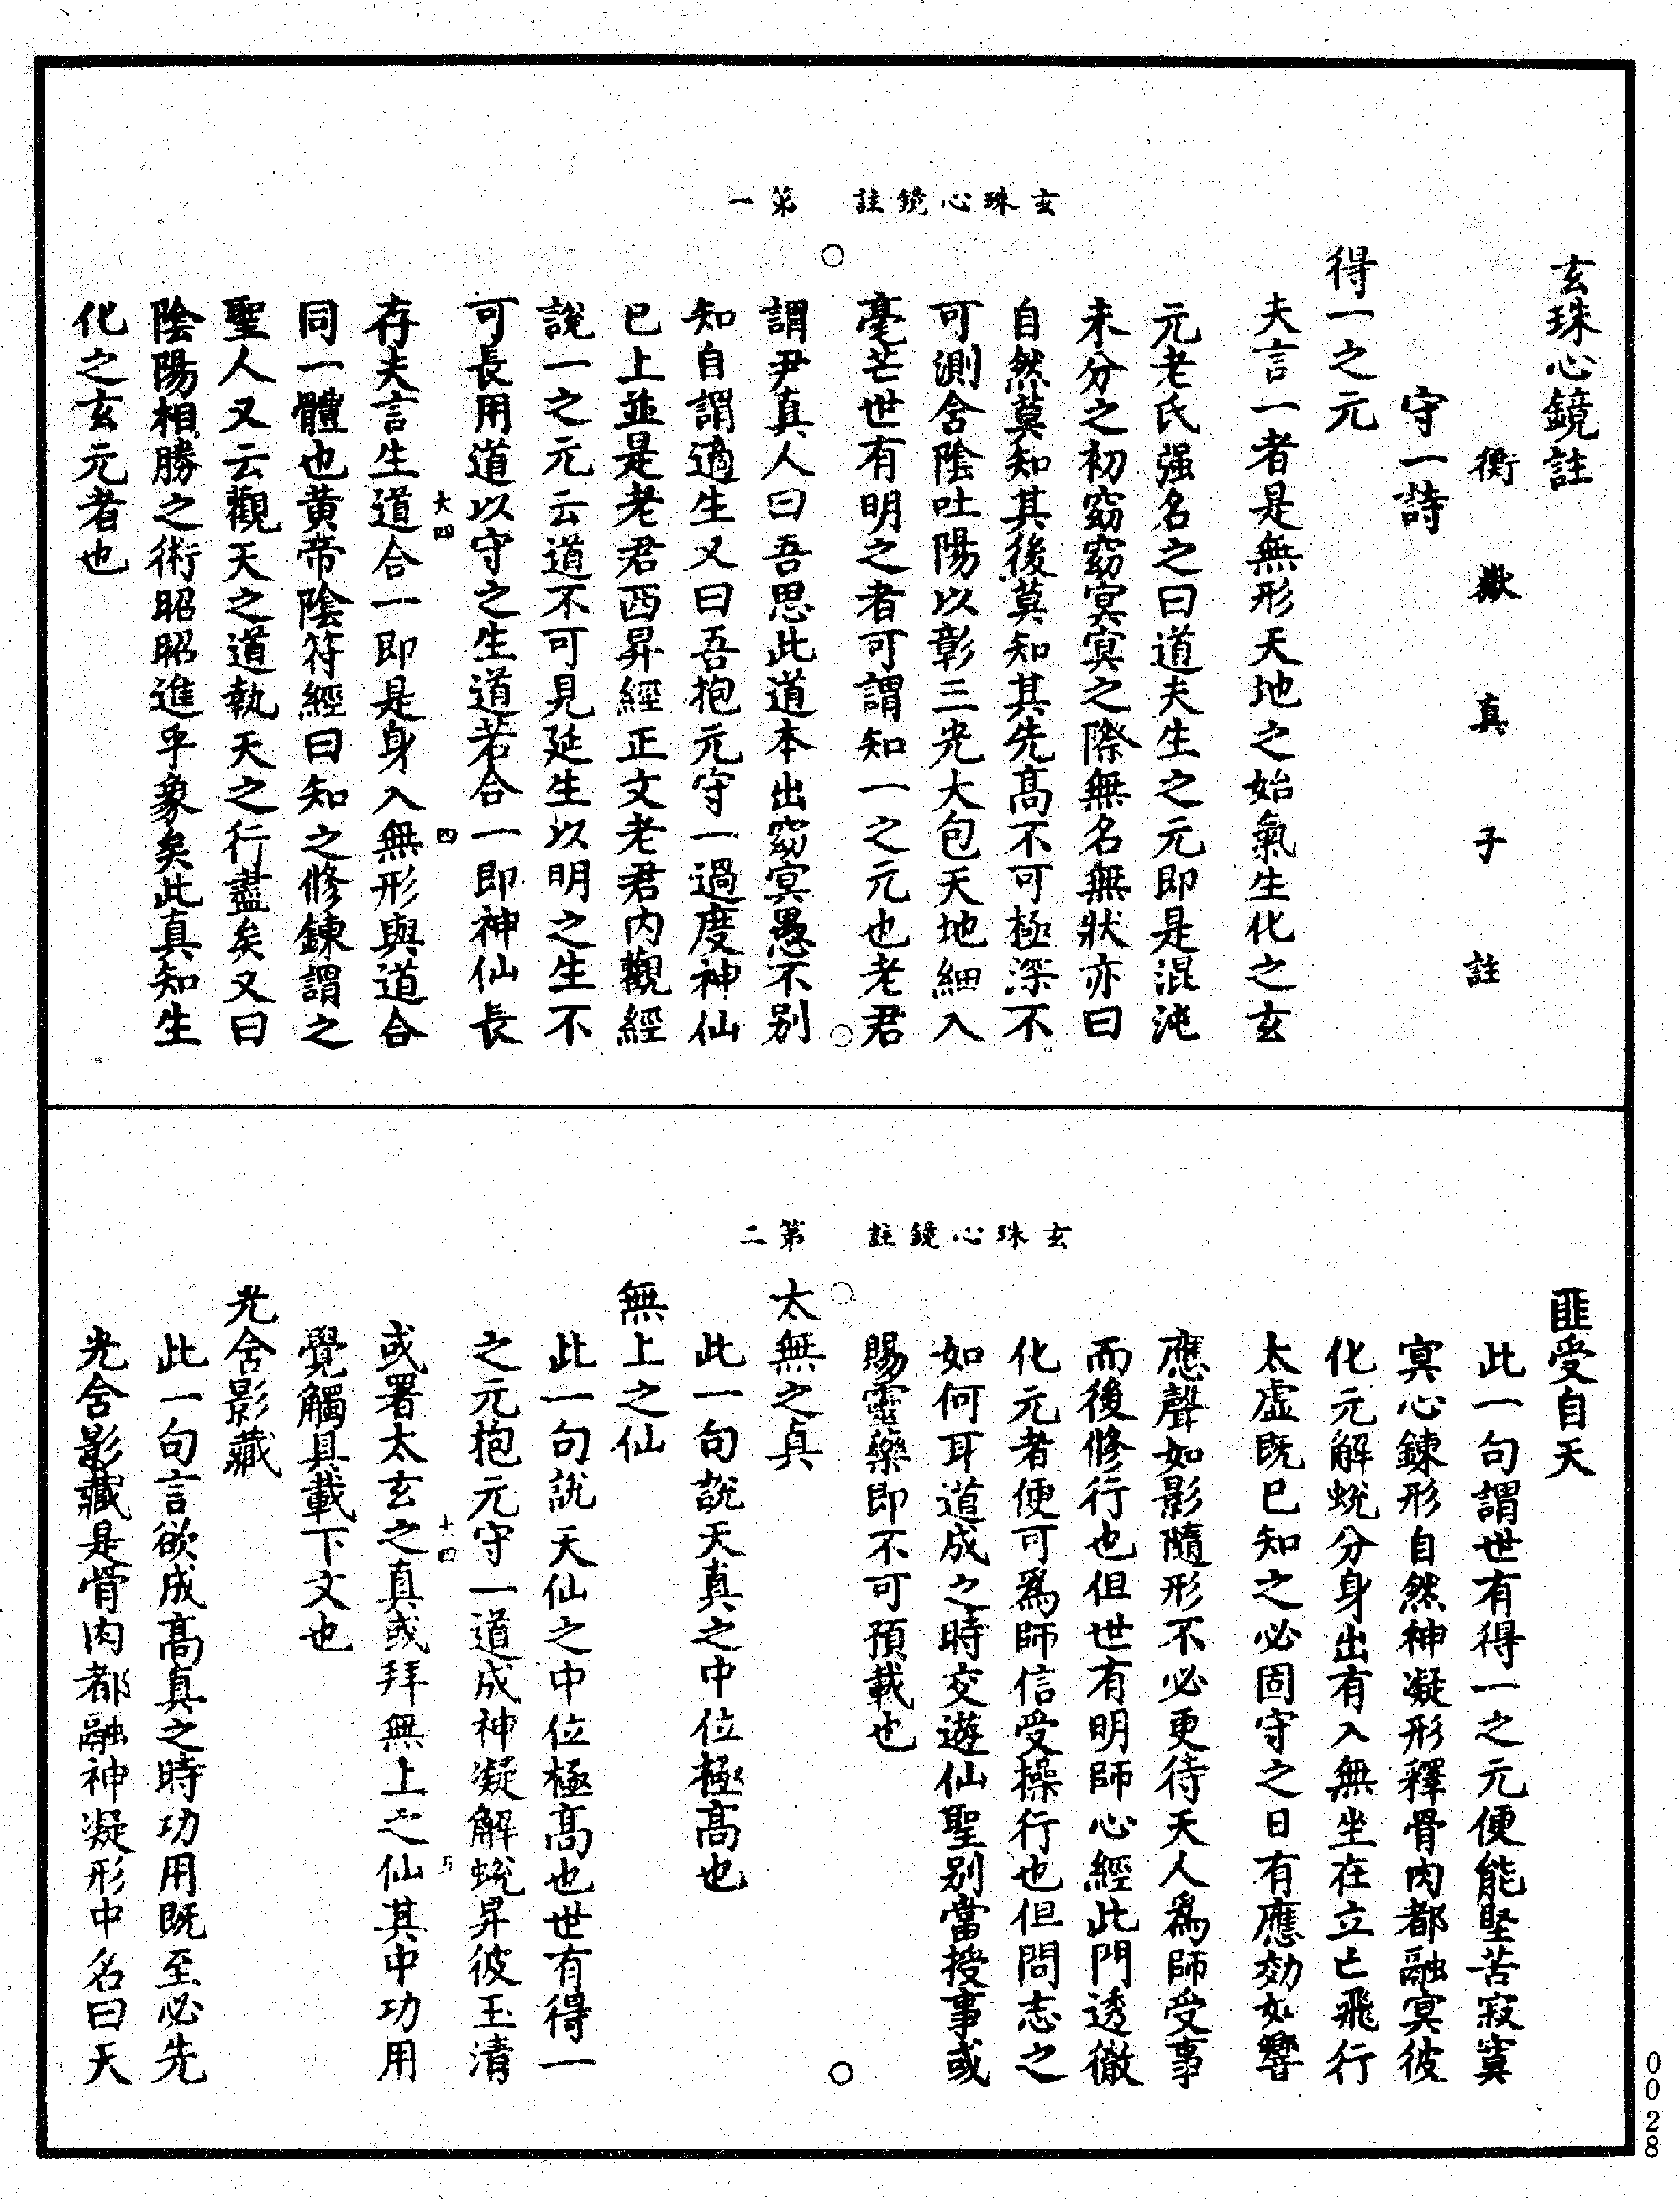 玄珠心鏡註
衡嶽真子註
守一詩
得一之元
夫言一者是無形天地之始氣生化之玄
元老氏强名之曰道夫生之元即是混沌
未分之初窈窈冥冥之際無名無狀亦曰
自然莫知其後莫知其先高不可極深不
可測含陰吐陽以彰三光大包天地細入
毫芒世有明之者可謂知一之元也老君
玄珠心鏡註 第一
謂尹真人曰吾思此道本出窈冥愚不别
知自謂適生又曰吾抱元守一過度神仙
已上並是老君西昇經正文老君内觀經
說一之元云道不可見延生以明之生不
可長用道以守之生道若合一即神仙長
大四 四
存夫言生道合一即是身入無形與道合
同一體也黄帝陰符經曰知之修鍊謂之
聖人又云觀天之道執天之行盡矣又曰
陰陽相勝之術昭昭進乎象矣此真知生
化之玄元者也
匪受自天
此一句謂世有得一之元便能堅苦寂寞
冥心鍊形自然神凝形釋骨肉都融冥彼
化元解蛻分身出有入無坐在立亡飛行
太虛既已知之必固守之日有應効如響
應聲如影隨形不必更待天人爲師受事
而後修行也但世有明師心經此門透徹
化元者便可爲師信受操行也但問志之
如何耳道成之時交遊仙聖别當授事或
賜靈藥即不可預載也
玄珠心鏡註 第二
太無之真
此一句說天真之中位極高也
無上之仙
此一句說天仙之中位極高也世有得一
之元抱元守一道成神凝解蛻昇彼玉清
十四
或署太玄之真或拜無上之仙其中功用
覺觸具載下文也
光含影藏
此一句言欲成高真之時功用既至必先
光含影藏是骨肉都融神凝形中名曰天
0028